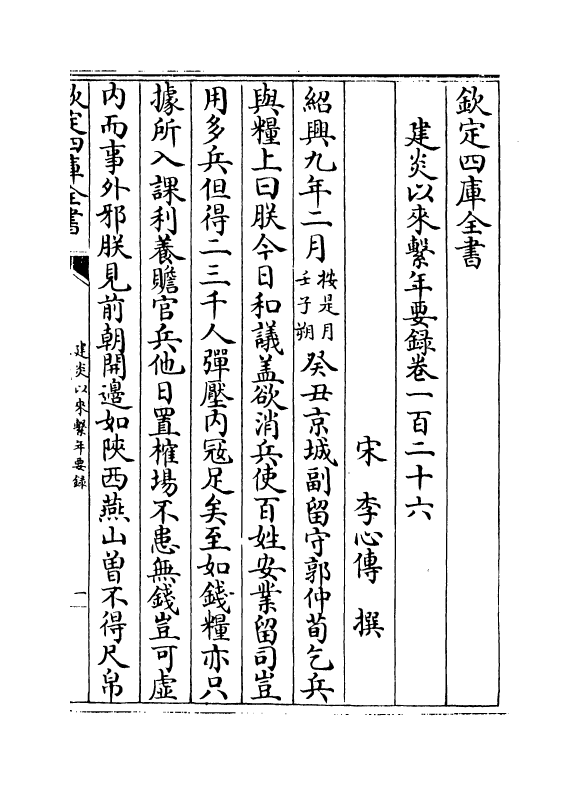 欽定四庫全書
建炎以來繫年要録卷一百二十六
宋 李心傳 撰
紹興九年二月按是月壬子朔癸丑京城副留守郭仲荀乞兵
與糧上曰朕今日和議盖欲消兵使百姓安業留司豈
用多兵但得二三千人彈壓内冦足矣至如錢糧亦只
據所入課利養贍官兵他日置榷場不患無錢豈可虚
内而事外邪朕見前朝開邊如陜西燕山曾不得尺帛
欽定四庫全書
建炎以來繫年要録
一